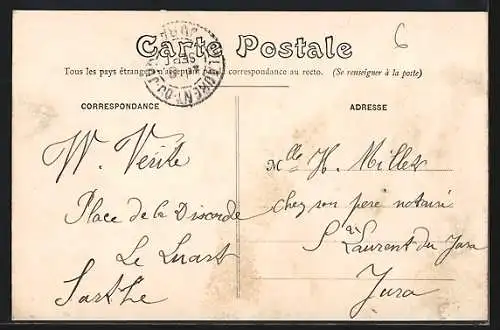 6
Carte Postale
Tous les pays étrangers n'acceptent pas la correspondance au recto. (Se renseigner à la poste)
CORRESPONDANCE
W. Verite
Place de la Discorde
Le Luart
Sarthe
ADRESSE
Mlle H. Millet
chez son père notaire
St Laurent du Jura
Jura